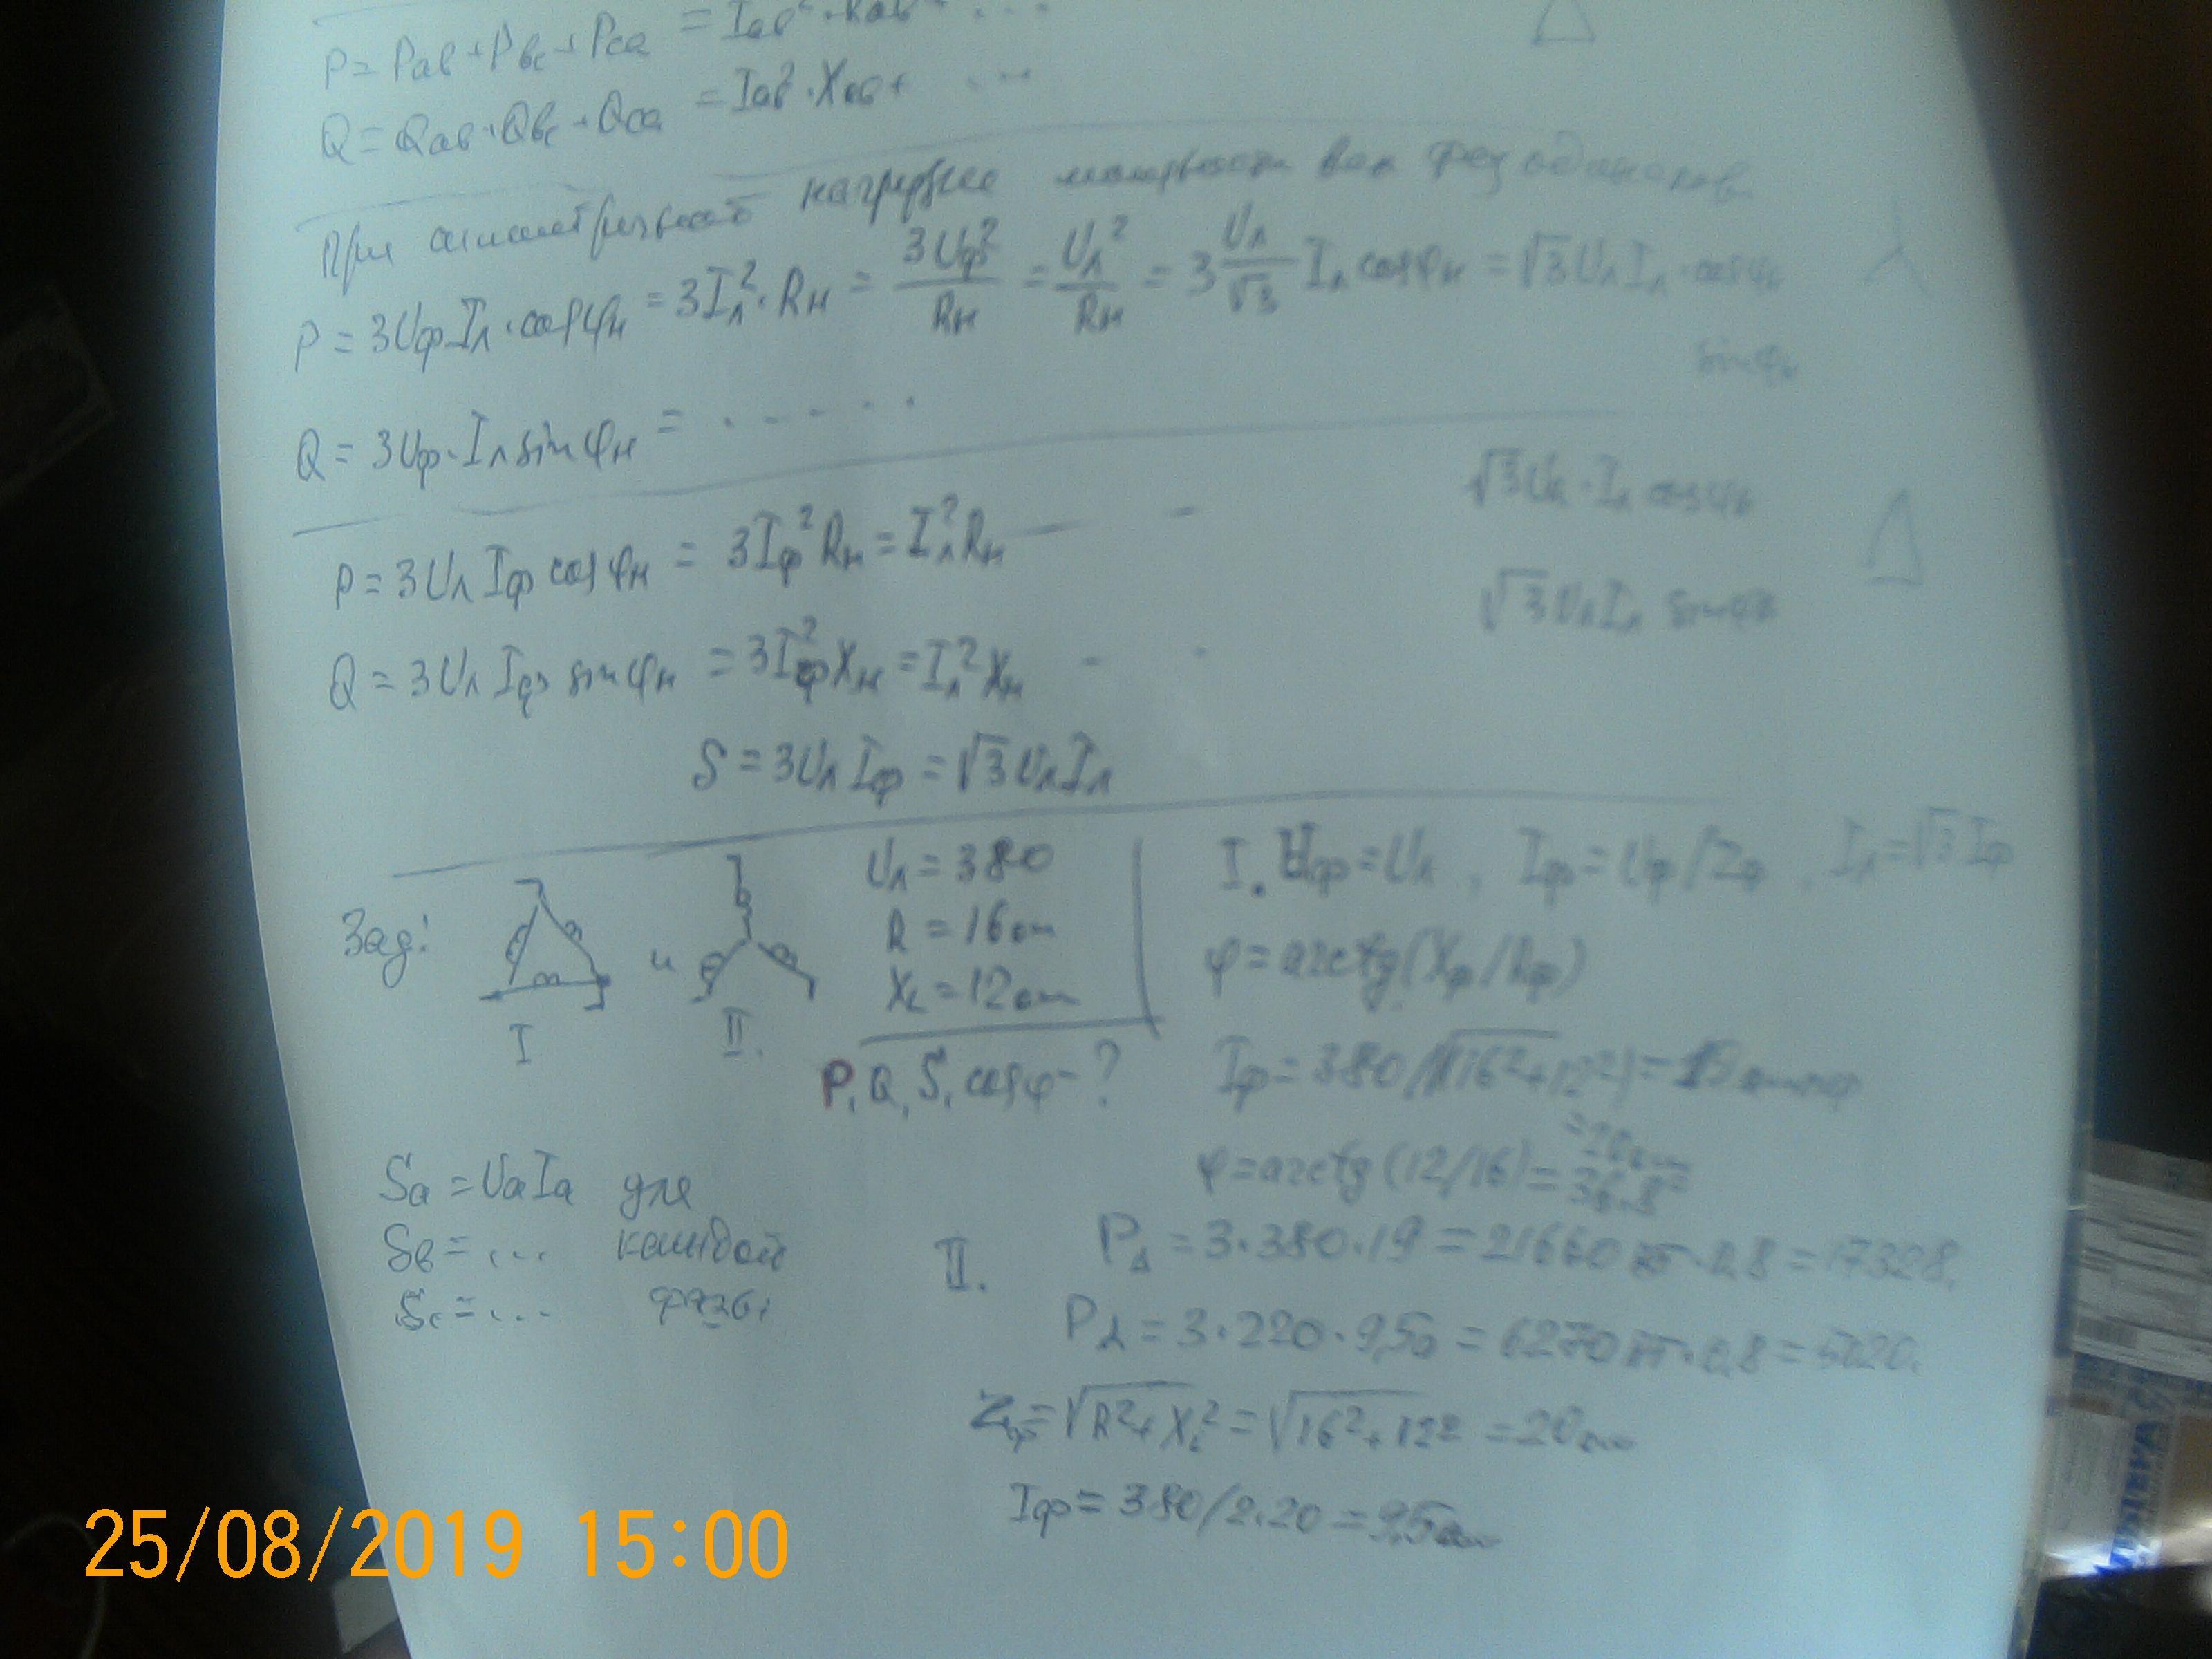 P = Pав + Pвс + Pса = Iав² · Rав
Q = Qав + Qвс + Qса = Iав² · Xав + ...
При симметричной нагрузке мощности фаз одинаков.
P = 3Uф Iл · cosφн = 3Iл² · Rн = 3Uф²/Rн = Uл²/Rн = 3 Uл/√3 Iл cosφн = √3 Uл Iл · cosφн
sinφн
Q = 3Uф · Iл sinφн = . . . . . .
√3 Uл · Iл cosφн
P = 3Uл Iф cosφн = 3Iф² Rн = Iл² Rн — -
√3 Uл Iл sinφн
Q = 3Uл Iф sinφн = 3Iф² Xн = Iл² Xн - -
S = 3Uл Iф = √3 Uл Iл
Зад: I и II.
Uл = 380
R = 16 ом
XL = 12 ом
P, Q, S, cosφ - ?
I. Uф = Uл, Iф = Uф/Zф, Iл = √3 Iф
φ = arctg(Xф/Rф)
Iф = 380/(√16² + 12²) = 19 ампер
= 20 ом
φ = arctg(12/16) = 36.8°
Sа = Uа Iа для
Sв = ... каждой
Sс = ... фазы
II. P△ = 3 · 380 · 19 = 21660 · 0,8 = 17328.
P⅄ = 3 · 220 · 9,5а = 6270 · 0,8 =
Zф = √R² + XL² = √16² + 12² = 20 ом
Iф = 380/2·20 = 9,5